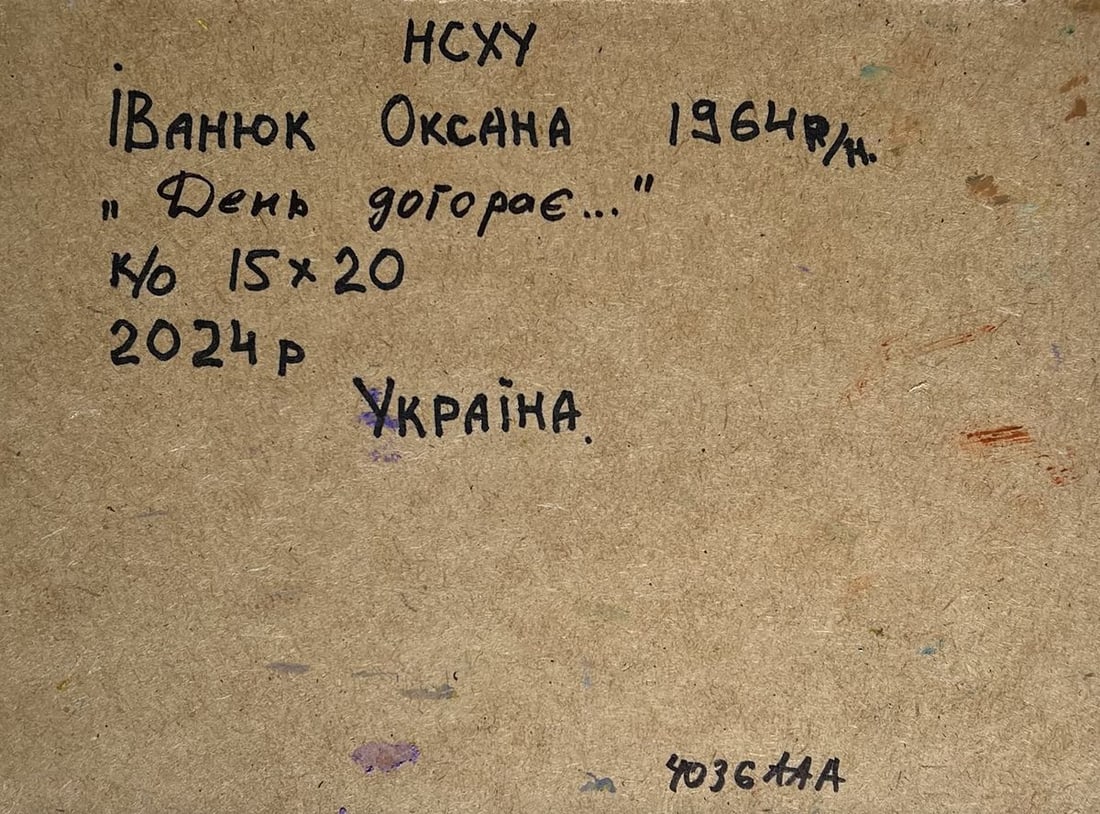 НСХУ
Іванюк Оксана 1964р/н.
„День догорає..."
к/о 15×20
2024р
Україна.
4036ААА